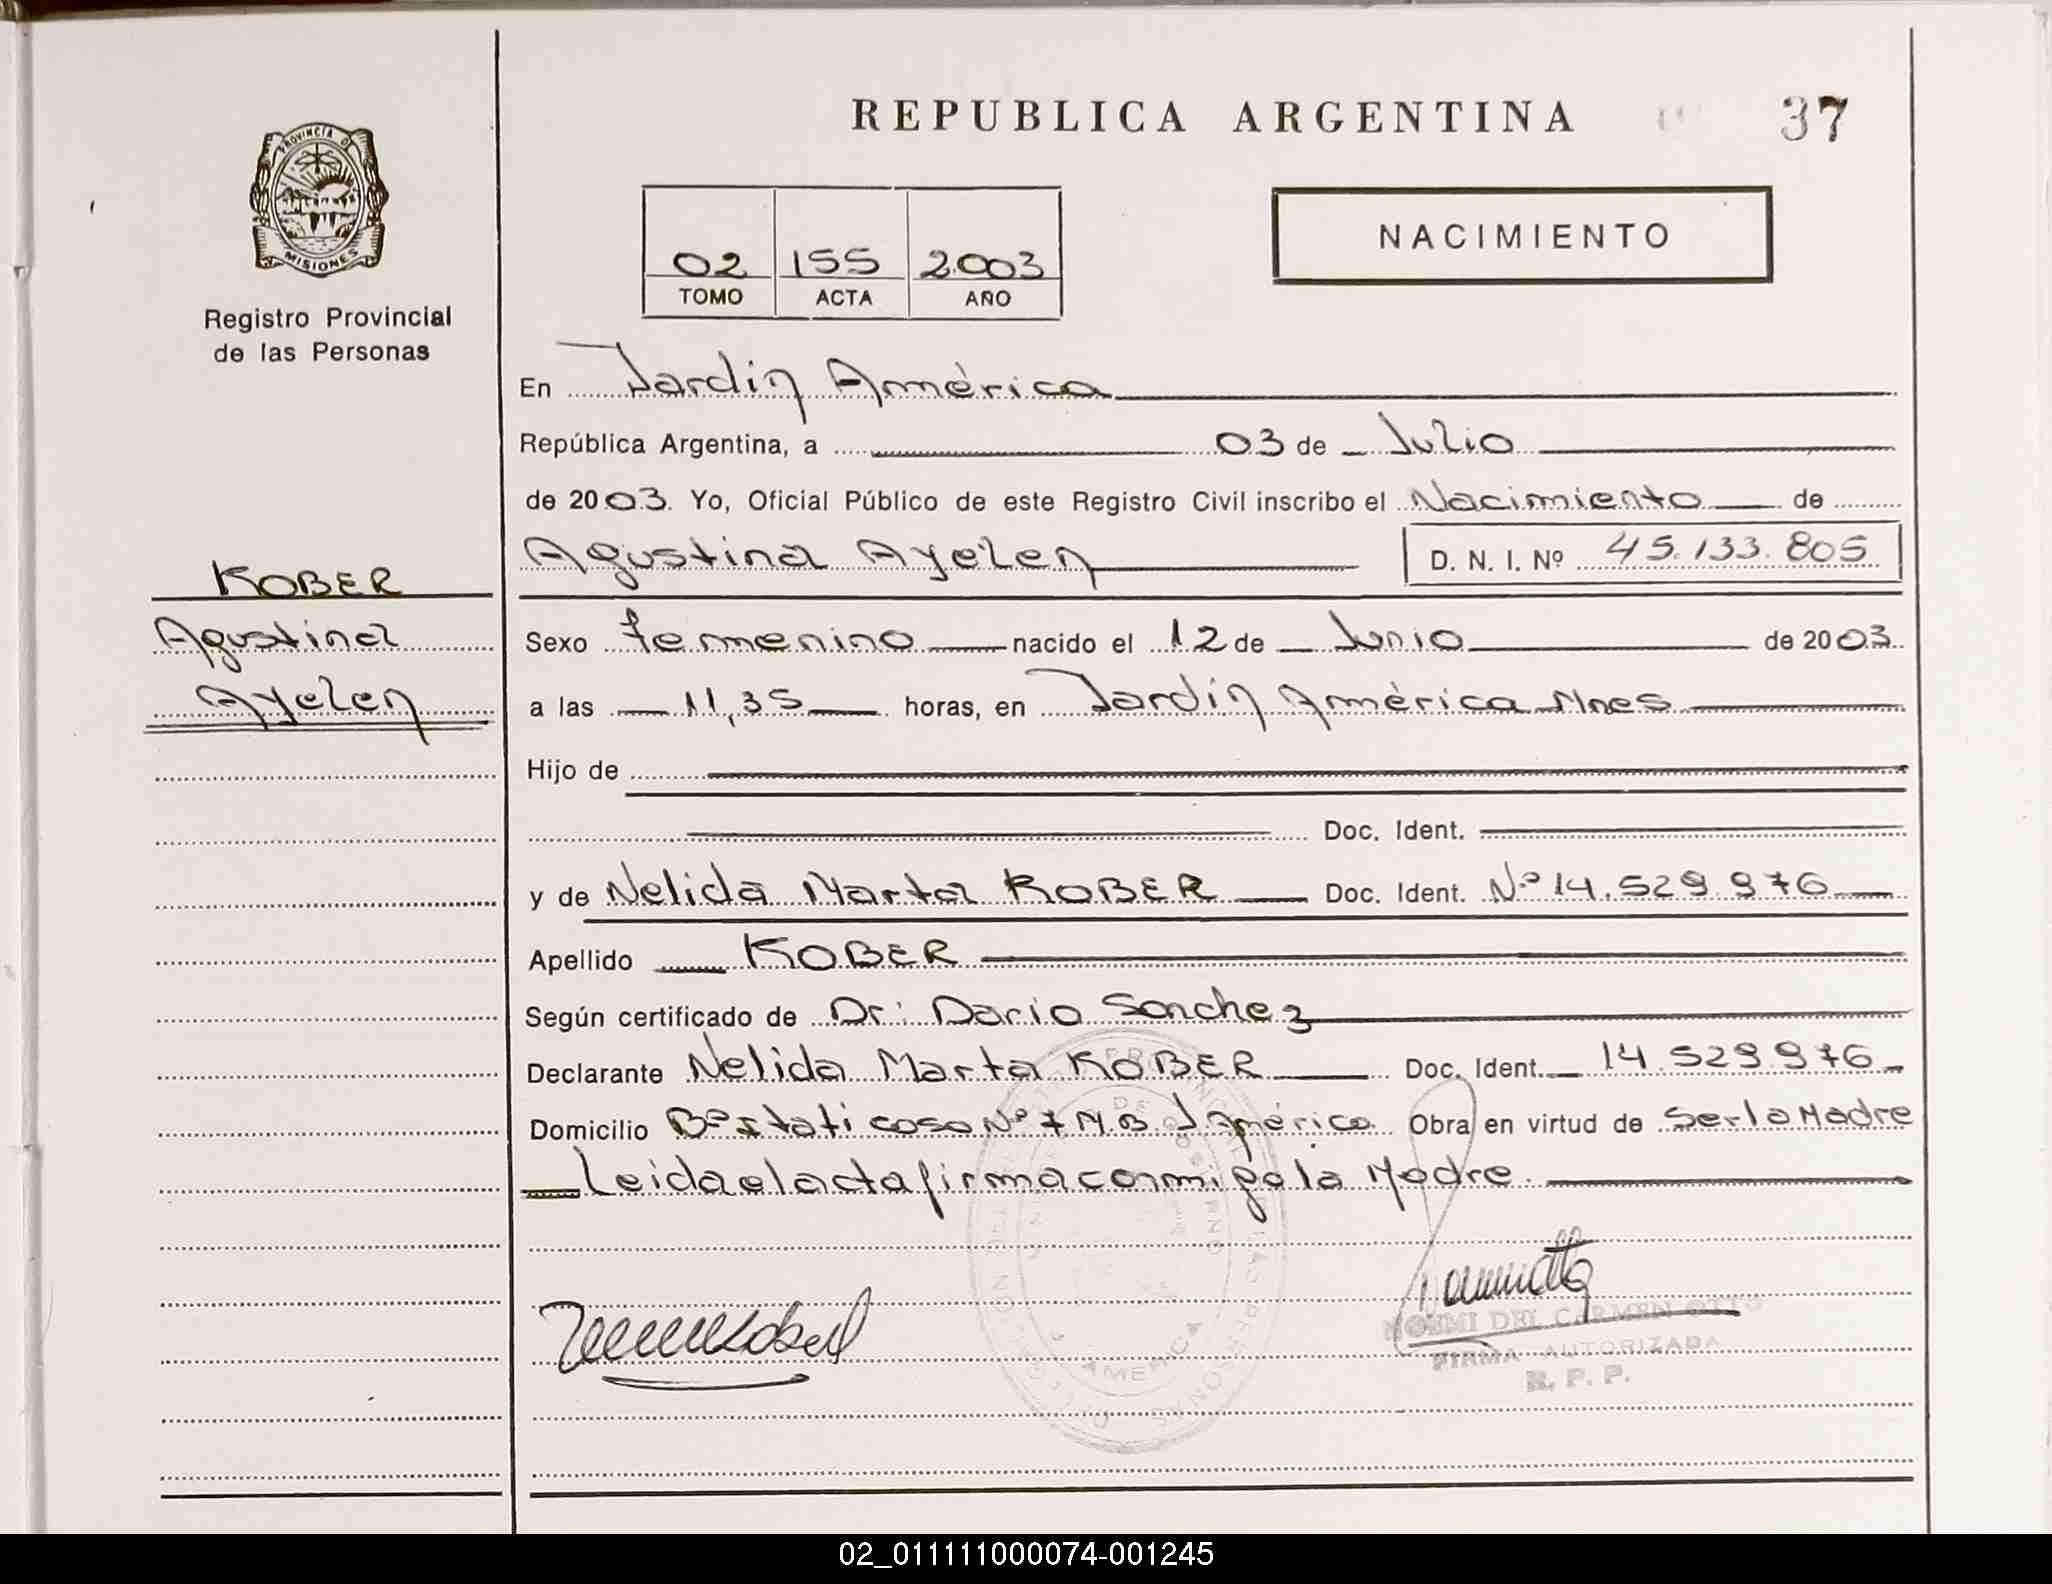 REPUBLICA ARGENTINA
37
PROVINCIA D
MISIONES
Registro Provincial
de las Personas
02 155 2003
TOMO ACTA AÑO
NACIMIENTO
En Jardin América
República Argentina, a 03 de Julio
de 2003. Yo, Oficial Público de este Registro Civil inscribo el Nacimiento de
Agustina Ayelen D. N. I. Nº 45.133.805
KOBER
Agustina
Ayelen
Sexo femenino nacido el 12 de Junio de 2003
a las 11,35 horas, en Jardin América Mnes
Hijo de
Doc. Ident.
y de Nelida Marta KOBER Doc. Ident. Nº 14.529.976
Apellido KOBER
Según certificado de Dr: Dario Sanchez
Declarante Nelida Marta KOBER Doc. Ident. 14.529.976
Domicilio Bº casa Nº 7 M.B J América Obra en virtud de Ser la Madre
Leida el acta firma conmigo la Madre.
NOEMI DEL CARMEN OTTO
FIRMA AUTORIZADA
R. P. P.
AMERICA
02_011111000074-001245